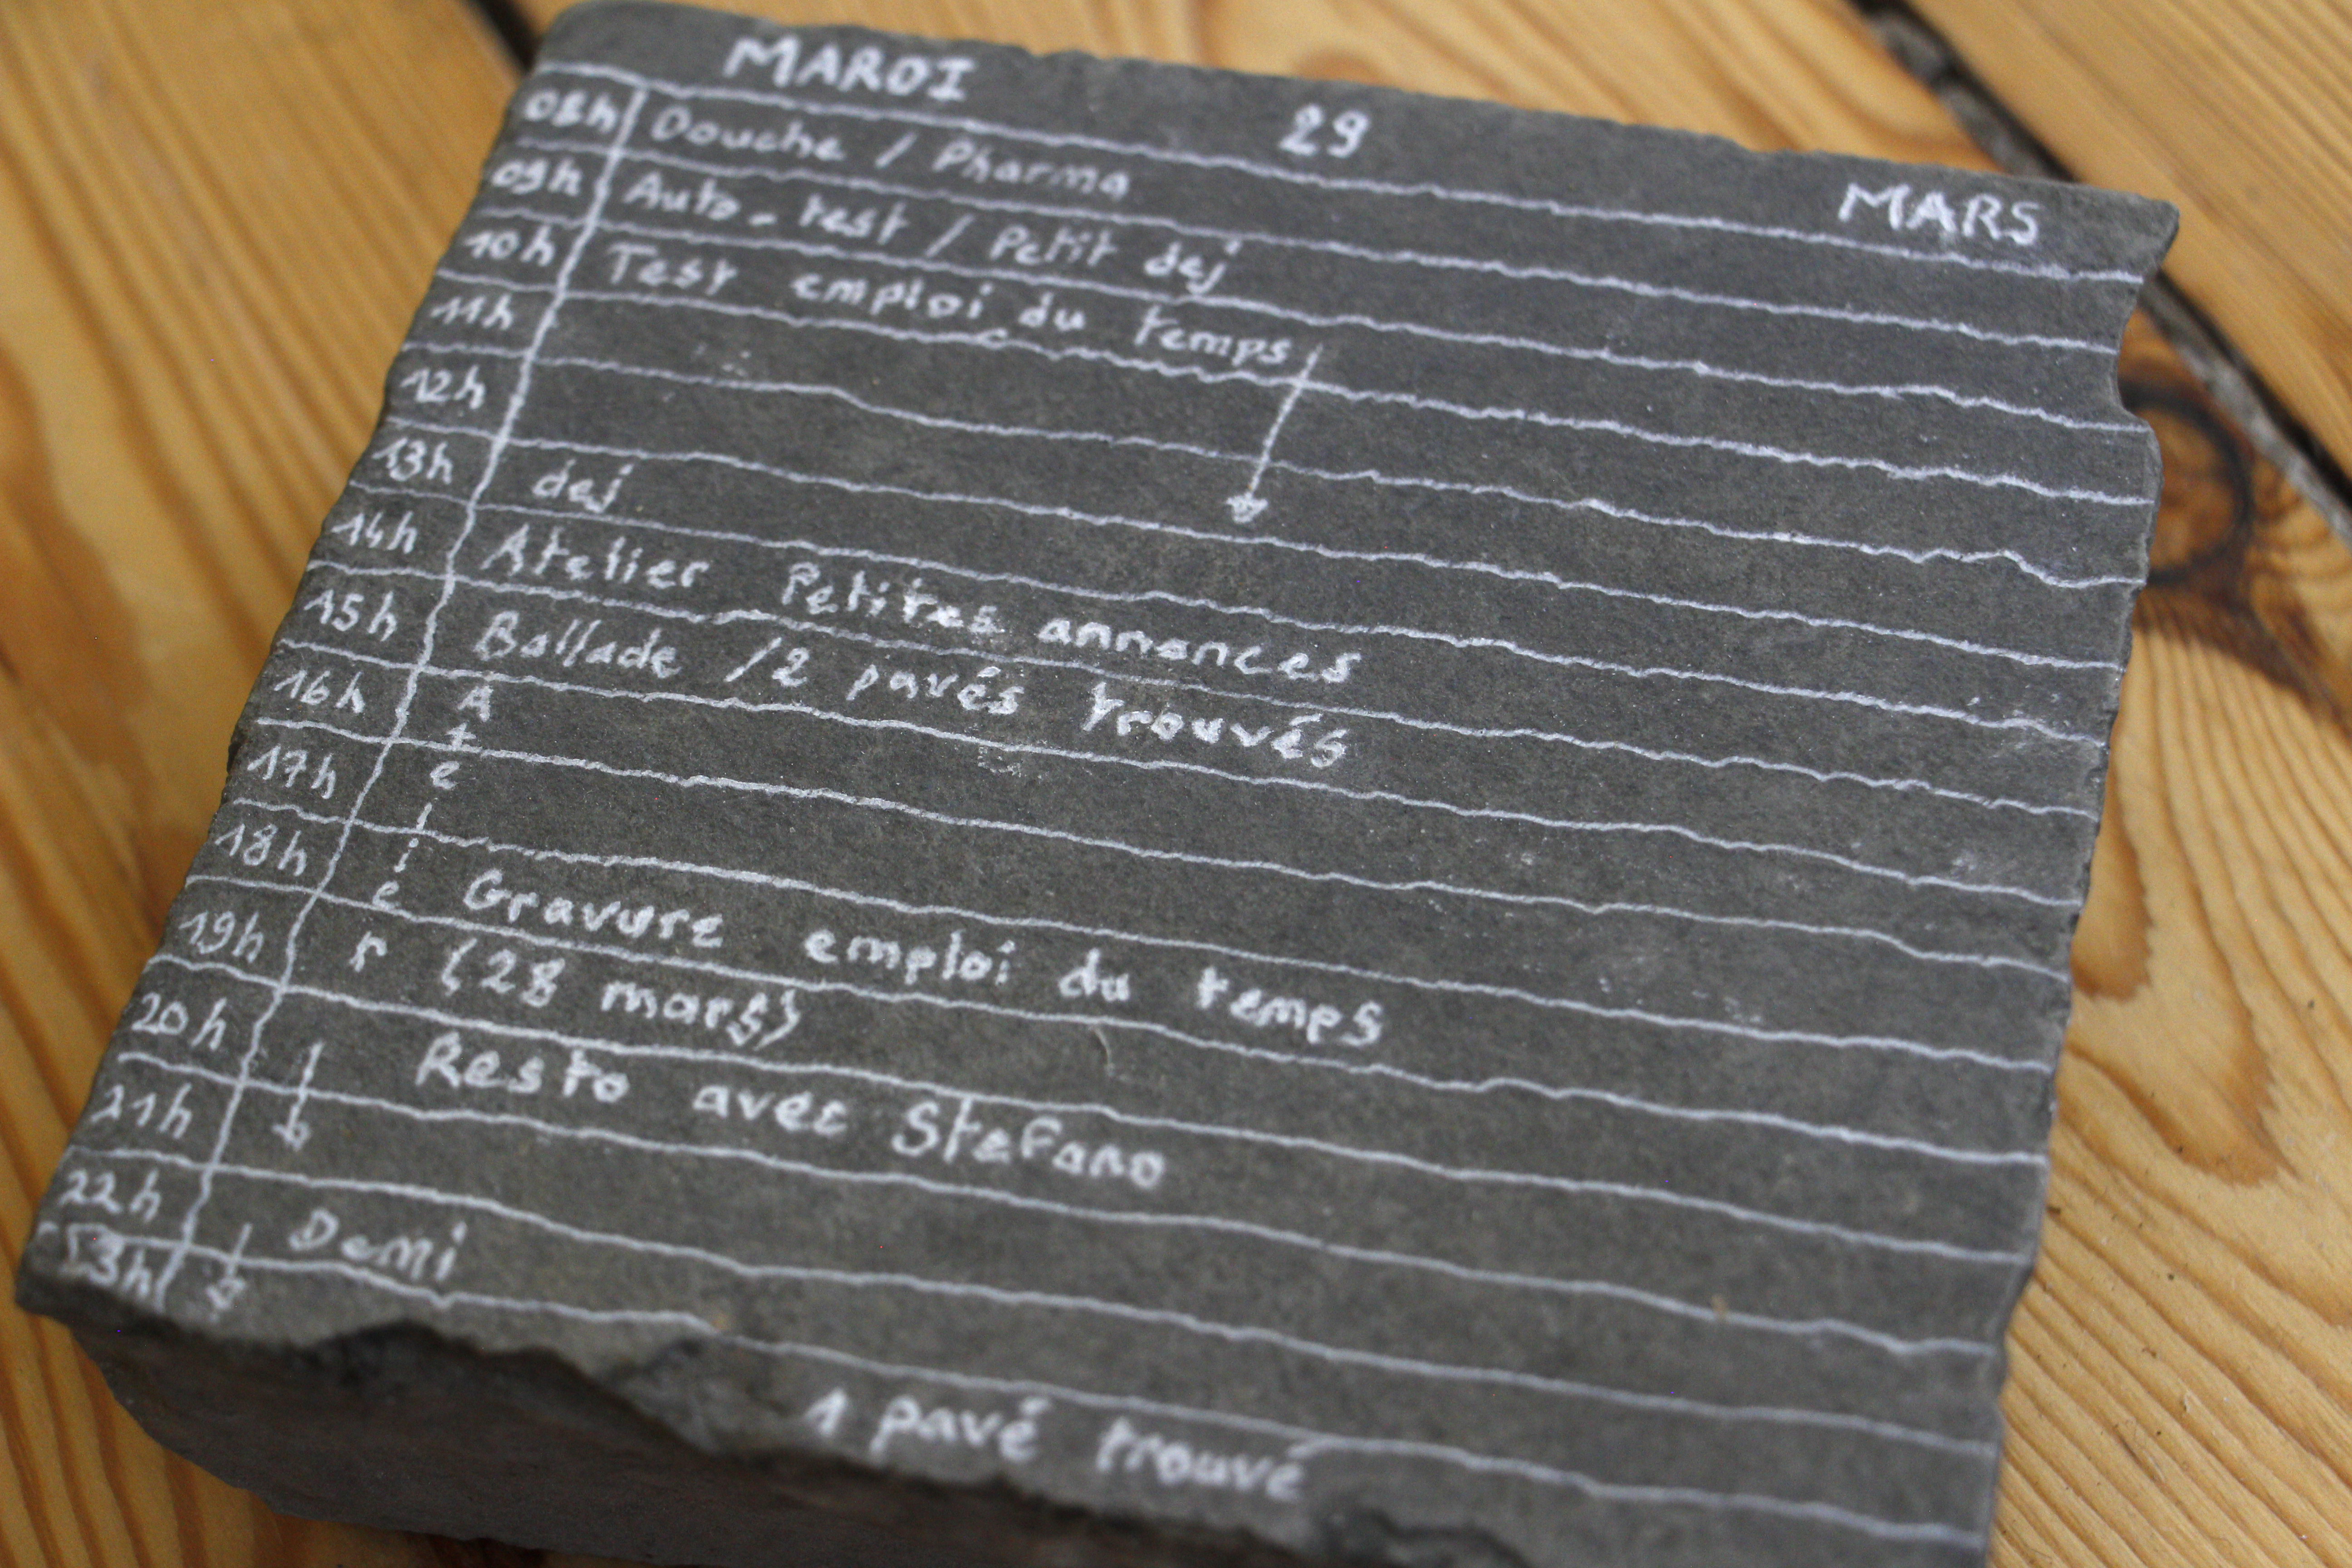 MARDI 29 MARS
08h Douche / Pharma
09h Auto-test / Petit dej
10h Test emploi du temps
11h
12h
13h dej
14h Atelier Petites annonces
15h Ballade / 2 pavés trouvés
16h Atelier
17h
18h Gravure emploi du temps
19h (28 mars)
20h Resto avec Stefano
21h
22h Demi
23h
1 pavé trouvé